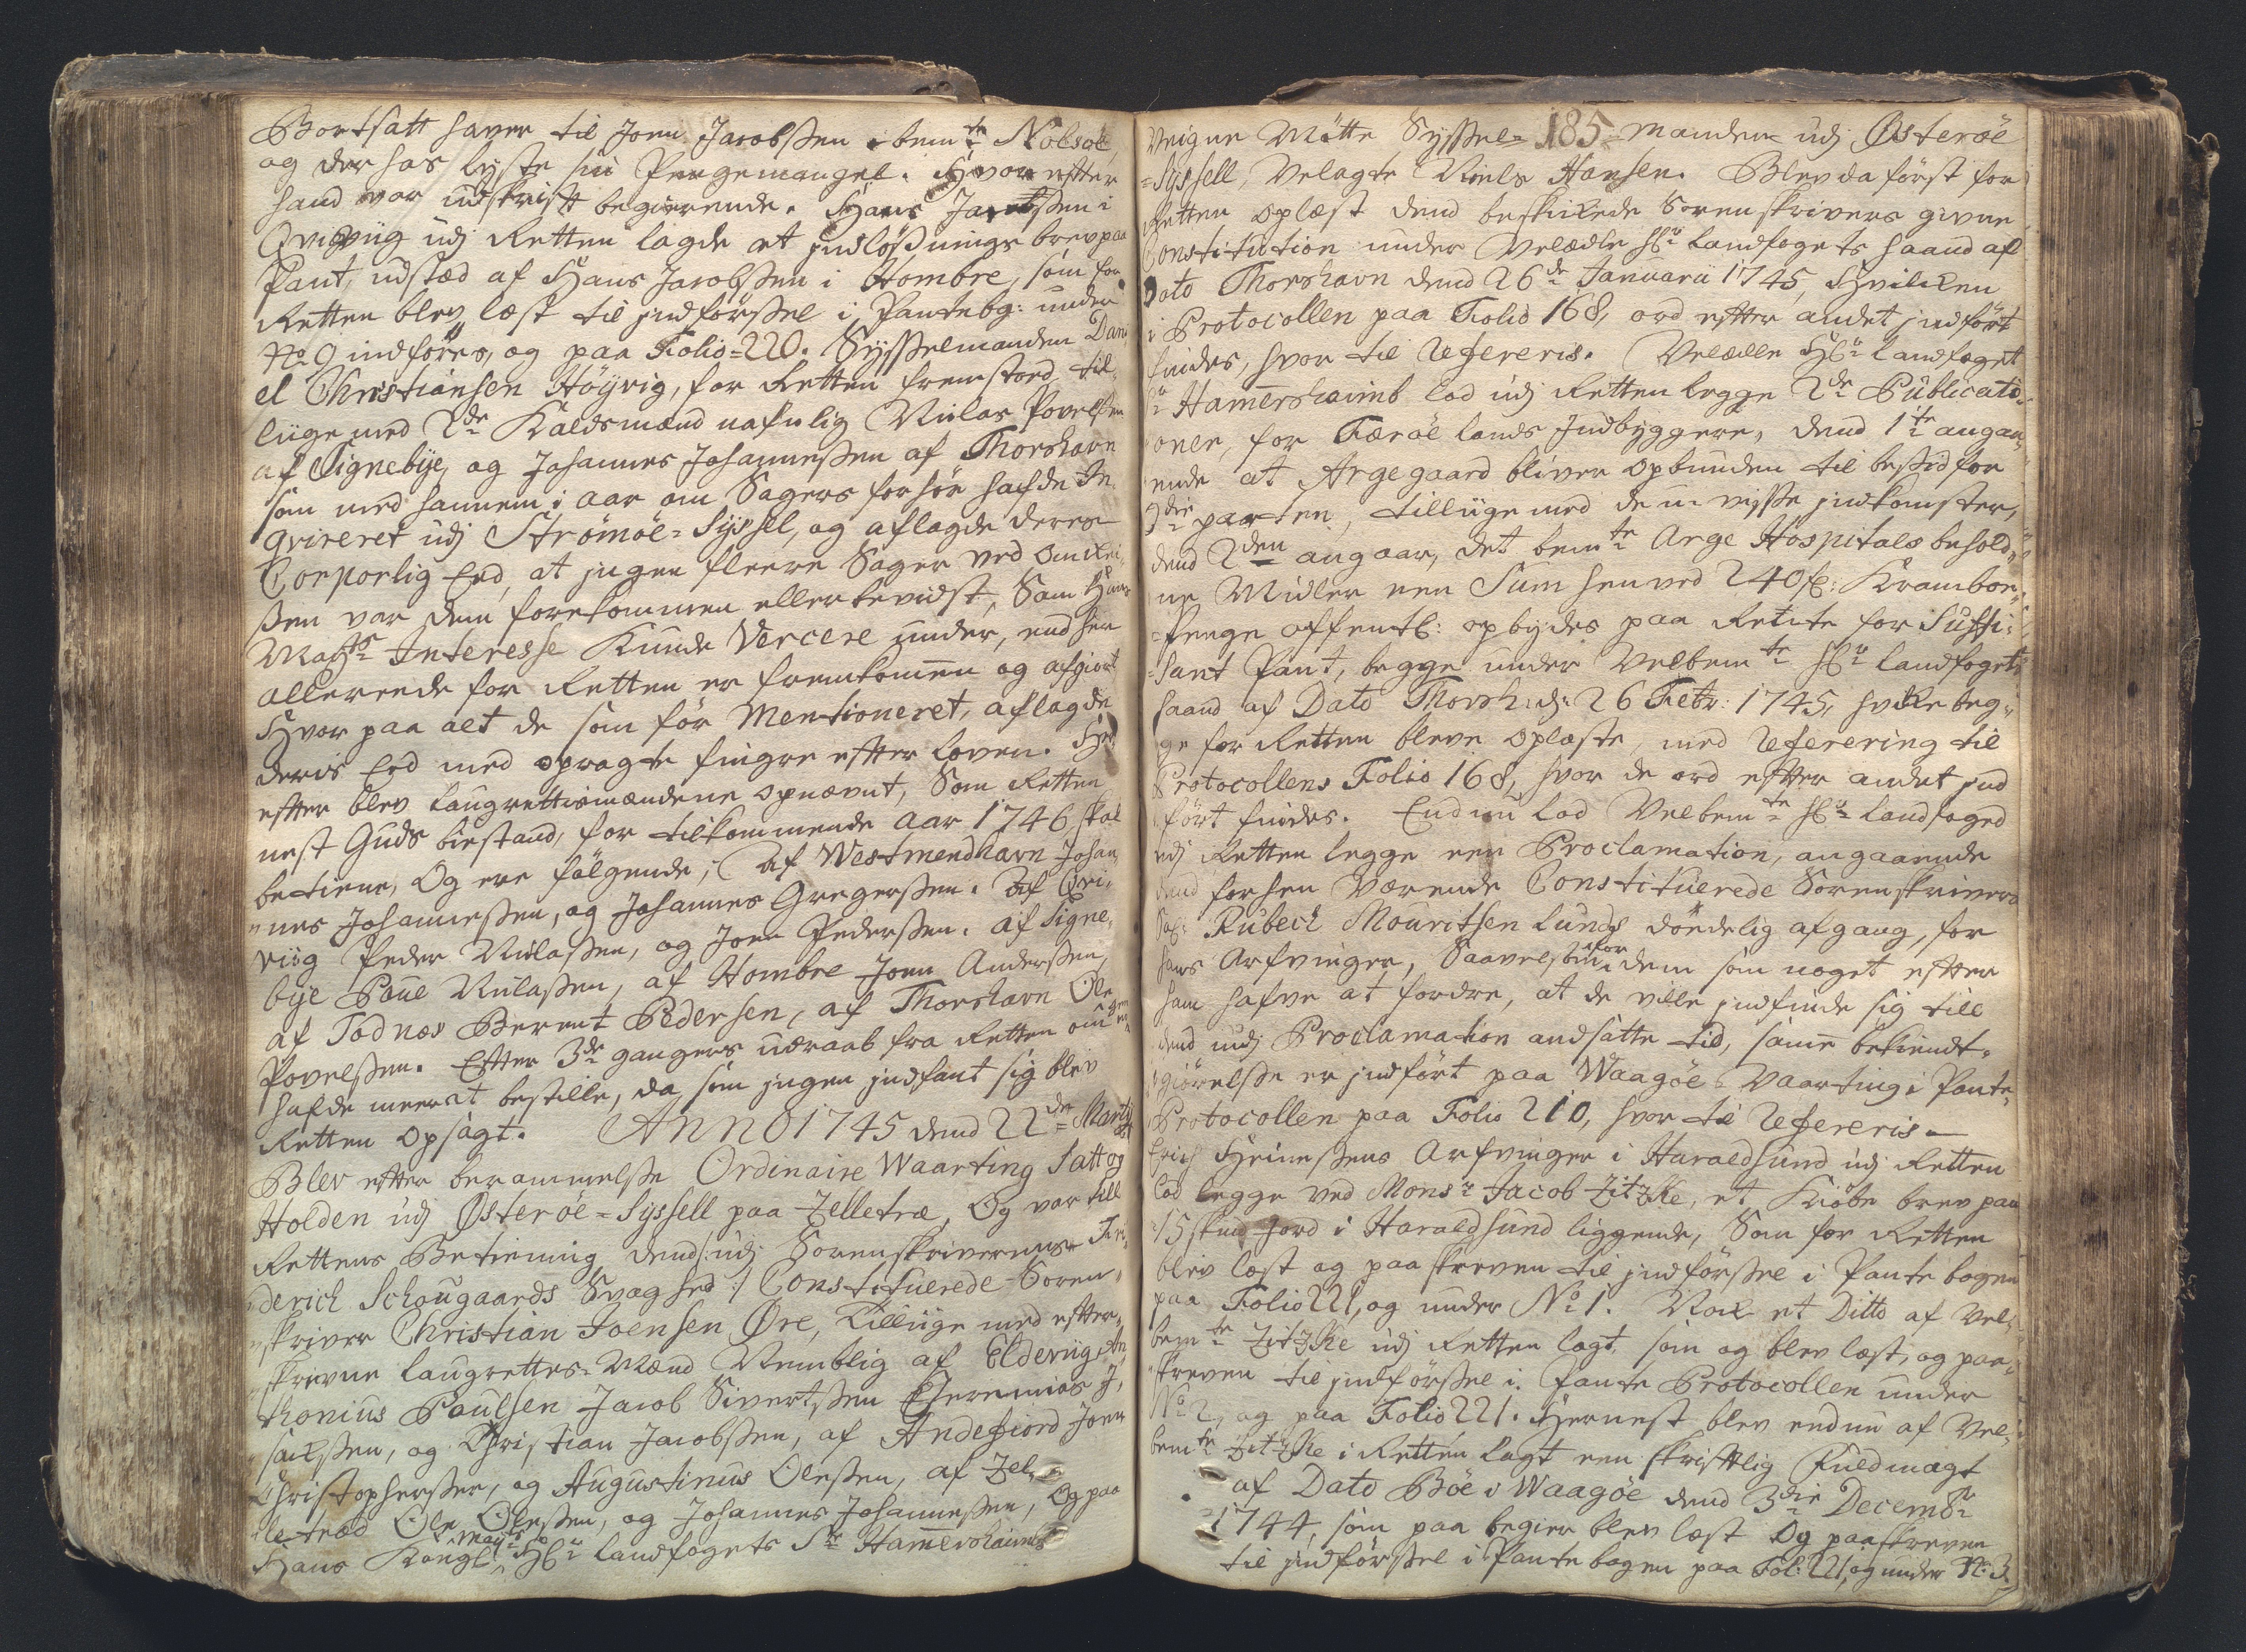 Bortsatt haver til Joen Jacobsen i bemte Nolsøe
og der hos lyste sin Pengemangel. Hvor efter
hand var udskrift begierende. Hans Jacobsen i
Qviviig udj Retten lagde et indløsnings brev paa
Pant, udstæd af Hans Jacobsen i Hombre, som for
Retten blev læst til indførsel i Pantebg: under
No 9 indføres, og paa Folio=220. Sysselmanden Dani
el Christiansen Höÿvig, for Retten fremstod til
liige med 2de Kaldsmænd nafnlig Niclas Povelsen
af Signebÿe, og Johannes Johannessen af Thorshavn
som med hannem i aar om Sagers forhör hafde In
qvireret udj Strømøe=Sÿssel, og aflagde deres
Corporlig Eed, at ingen fleere Sager ved
var dem forekommen eller bevidst, Som Hans
Mayts Interesse Kunde Vercere under, end hen
allereede for Retten er fremkommen og afgiort
Hvor paa alt de som før Mentioneret, aflagde
deris Eed med opragte fingre efter loven. Her
efter blev laugrettismændene opnævnt, Som Retten
nest Guds bistand, for tilkommende aar 1746 skal
betiene, Og ere følgende; af Westmendhavn Johan,
nes Johannessen, og Johannes Gregersen. af Qvi,
viig Peder Niclasen, og Joen Pedersen. af Signe,
bÿe Poul Niclasen, af Hombre Joen Andersen,
af Todnæs Berent Pedersen, af Thorshavn Ole
Povelsen. Efter 3de gangers udraab fra Retten om
hafde meere at bestille, da som ingen indfant sig blev
Retten opsagt. ANNO 1745 dend 22de Martÿ
Blev efter berammelse Ordinaire Waarting Satt og
Holden udj Østerøe=Sÿssell paa Zelletræ, Og var till
Rettens Betiening, dend/: udj Sorenskriverens Fri,
derich Schougaards Svaghed :/ Constituerede Soren,
skriver Christian Joensen Øre, Tilliige med efter,
skrevne laugrettes=Mænd Nemblig af Elderviig An
thonius Poulsen Jacob Sivertsen Jeremias J,
sachsen, og Christian Jacobsen, af Andefiord Joen
Christophersen, og Augustinus Olesen, af Zel,
letræd Ole Olesen, og Johannes Johannessen, Og paa
Hans Kongl: Mayts Hr landfogets Sr Hammershaimbs
Veigne Mötte Syssel= 185 manden udj Østerøe
=Sÿssell, Velagte Niels Hansen. Blev da først for
Retten oplæst dend beskikede Sorenskrivers givne
Constitution under Velædle Hr landfogets haand af
Dato Thorshavn dend 26de Januarii 1745, Hvilken
i Protocollen paa Folio 168, ord efter andet indført
findes, hvor til Refereris. Velædle Hr landfoget
Sr Hamershaimb lod udj Retten legge 2de Publicati=
oner, for Færøe lands Indbyggere, dend 1te angaa=
ende at Argegaard bliver opbunden til besid for
3die parten, tilliige med de u-visse indkomster,
dend 2den angaar, det bemte Arge Hospitals behold,,
ne Midler een Sum henved 240 f: Kramboe,,
=Penge offentl: opbydes paa Rente for Suffi=
=sant Pant, begge under Velbemte Hr landfogets
haand af Dato Thorsh: d: 26 Febr: 1745, hvilke beg,,
ge for Retten bleve oplæste, med Referering til
Protocollens Folio 168, hvor de ord efter andet ind
ført findes. Endnu lod Velbemte Hr landfoged
udj Retten legge een Proclamation, angaaende
dend forhen Værende Constituerede Sorenskrivers
Sal: Rubech Mouritsen Lunds dødelig afgang, for
hans Arfvinger, Saavelsom for dem som noget efter
ham hafve at fordre, at de ville indfinde sig till
dend udj Proclamation andsatte tid, same bekiendt=
giörelse er indført paa Waagöe Vaarting i Pante,,
Protocollen paa Folio 210, hvor til Refereris
Erich Heinesens Arfvinger i Haraldsund udj Retten
lod legge ved Monsr Jacob Zitzke, et Kiöbe brev paa
15 skind Jord i Haraldsund liggende, Som for Retten
blev læst og paaskreven til indførsel i Pante bogen
paa Folio 221, og under No 1. Nok et Ditto af Vel,,
bemte Zitzke udj Retten lagt, som og blev læst, og paa,,
skreven til indførsel i Pante Protocollen under
No 2, og paa Folio 221. Hernest blev endnu af Vel,
bemte Zitzke i Retten lagt een skriftlig Fuldmagt
af Dato Böe i Waagöe dend 3die Decembr
1744, som paa begier blev læst Og paaskreven
til indførsel i Pante bogen paa Fol: 221, og under N: 3.